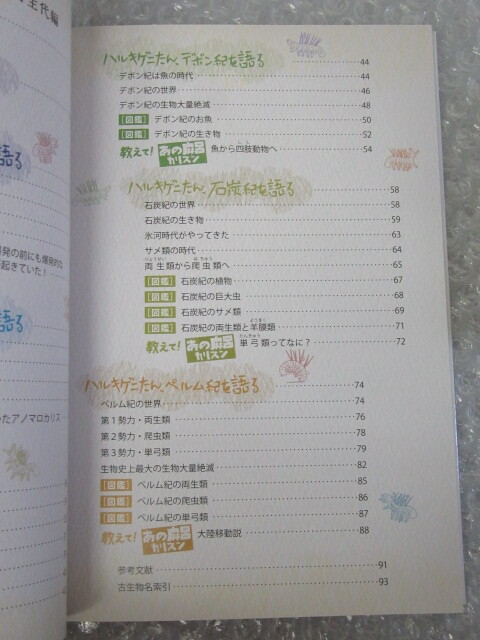 生代編
語る
発の前にも爆発的な
起きていた！
語る
たアノマロカリス
ハルキゲニたん、デボン紀を語る 44
デボン紀は魚の時代 44
デボン紀の世界 46
デボン紀の生物大量絶滅 48
[図鑑] デボン紀のお魚 50
[図鑑] デボン紀の生き物 52
教えて！ あの麻呂カリスン 魚から四肢動物へ 54
ハルキゲニたん、石炭紀を語る 58
石炭紀の世界 58
石炭紀の生き物 59
氷河時代がやってきた 63
サメ類の時代 64
両生類から爬虫類へ 65
[図鑑] 石炭紀の植物 67
[図鑑] 石炭紀の巨大虫 68
[図鑑] 石炭紀のサメ類 69
[図鑑] 石炭紀の両生類と羊膜類 71
教えて！ あの麻呂カリスン 単弓類ってなに？ 72
ハルキゲニたん、ペルム紀を語る 74
ペルム紀の世界 74
第1勢力・両生類 76
第2勢力・爬虫類 78
第3勢力・単弓類 79
生物史上最大の生物大量絶滅 82
[図鑑] ペルム紀の両生類 85
[図鑑] ペルム紀の爬虫類 86
[図鑑] ペルム紀の単弓類 87
教えて！ あの麻呂カリスン 大陸移動説 88
参考文献 91
古生物名索引 93